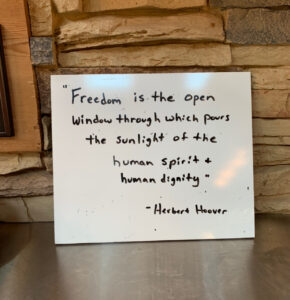 "Freedom is the open
window through which pours
the sunlight of the
human spirit +
human dignity"
- Herbert Hoover